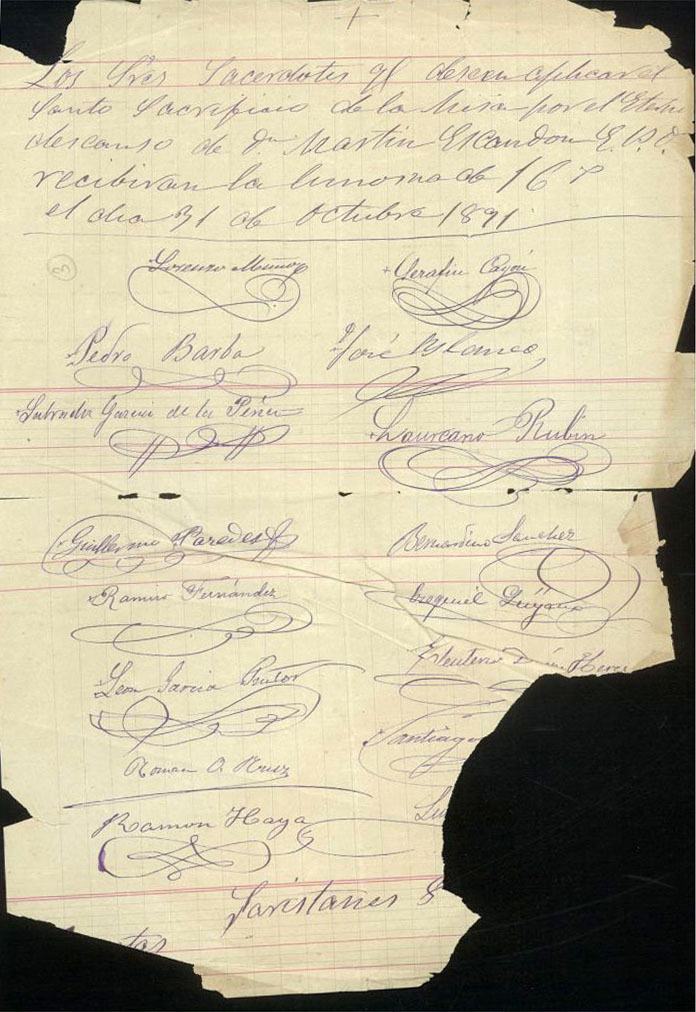 +
Los Sres Sacerdotes qe deseen aplicar el
Santo Sacrificio de la Misa por el Eterno
descanso de Dn Martin Escandon E. P. D.
recibiran la limosna de 16 r
el dia 31 de Octubre 1891
3
Lorenzo Muñoz
Serafin Cayón
Pedro Barba
José Blanco
Salvador Garcia de la Peña
Laureano Rubin
Guillermo Paredes
Bernardino Sanchez
Ramiro Fernández
Ezequiel
Leon Garcia Pastor
Eleuterio
Santiago
Roman O. Ruiz
Ramon Haya
Lu
Saristanes